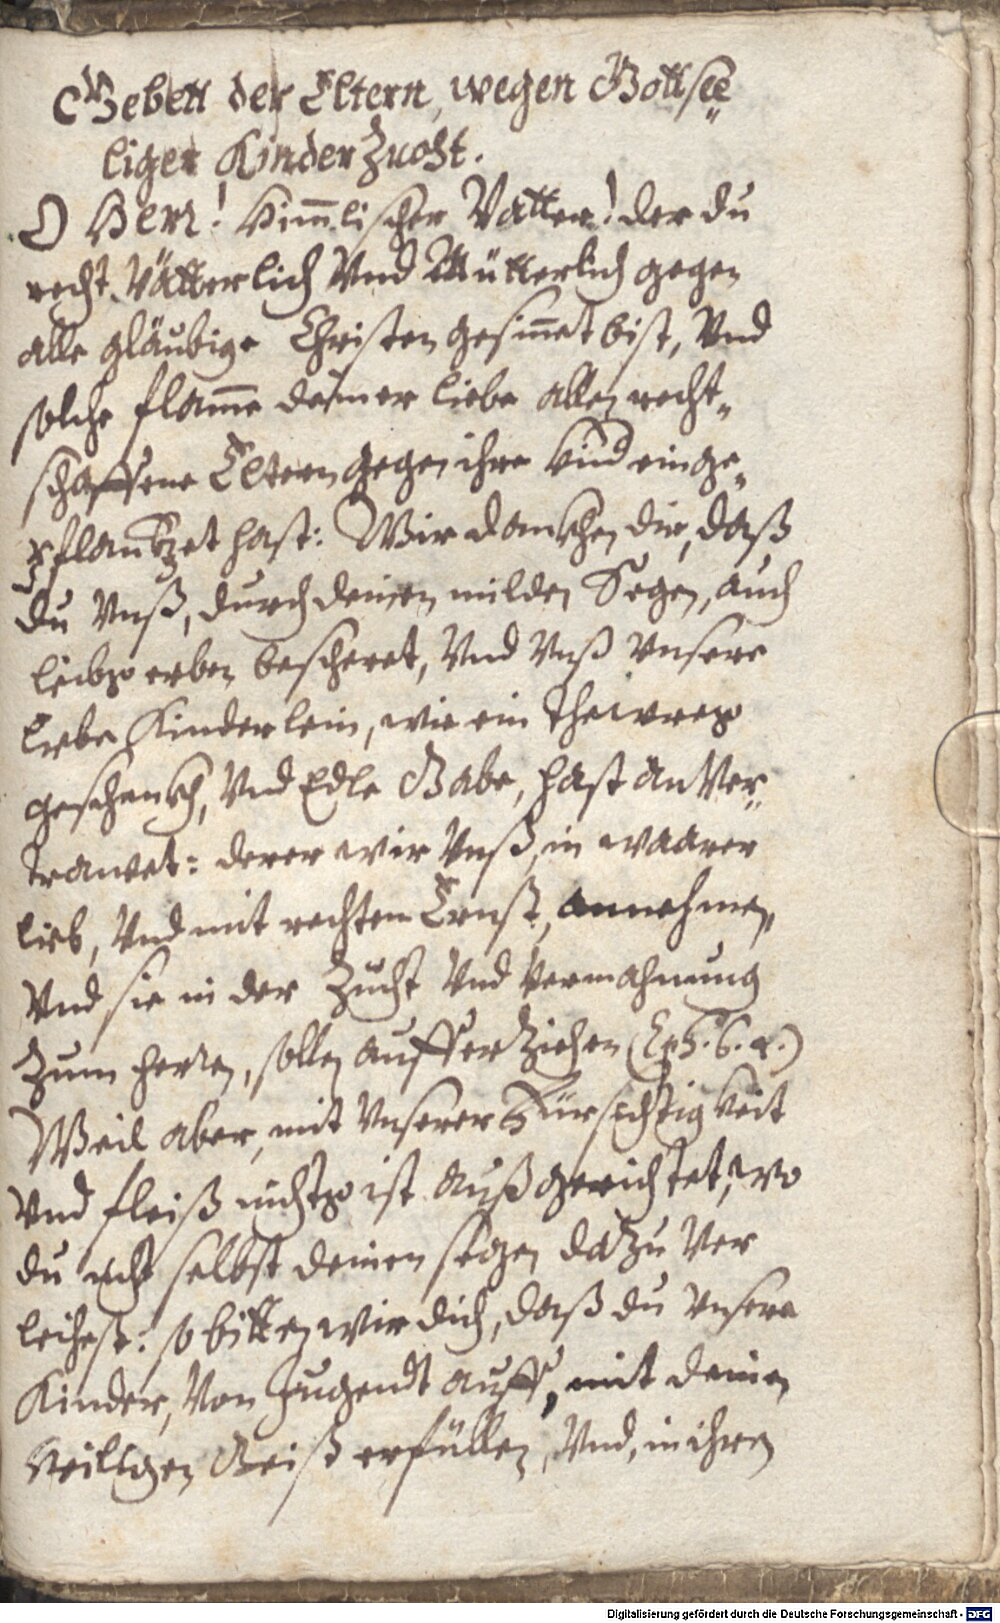 Gebett der Eltern, wegen Gottsee„
liger Kinder Zucht.
O Herr! Himlischer Vatter! der du
recht Vätterlich Vnd Mütterlich gegen
alle gläubige Christen gesinnet bist, Vnd
solche flamme deiner liebe allen recht„
schaffene Eltern gegen ihre kind einge„
pflantzet hast: Wir dancken dir, daß
du Vnß, durch deinen milden Segen, auch
leibs erben bescheret, Vnd Vnß Vnsere
liebe Kinderlein, wie ein thewres
geschenck, Vnd Edle Gabe, hast an Ver„
trawet: derer wir Vnß, in waarer
lieb, Vnd mit rechtem Ernst, annehmen,
Vnd sie in der Zucht Vnd Vermahnung
Zum herren, sollen aufferZiehen (Eph. 6. 4.)
Weil aber, mit Vnserer Fürsichtigkeit
Vnd fleiß nichts ist außgerichtet, wo
du nicht selbst deinen segen daZu Ver
leihest: so bitten wir dich, daß du Vnsere
Kinder, Von Jugendt auff, mit deinen
Heiligen Geist erfüllen, Vnd, in ihren
Digitalisierung gefördert durch die Deutsche Forschungsgemeinschaft - DFG